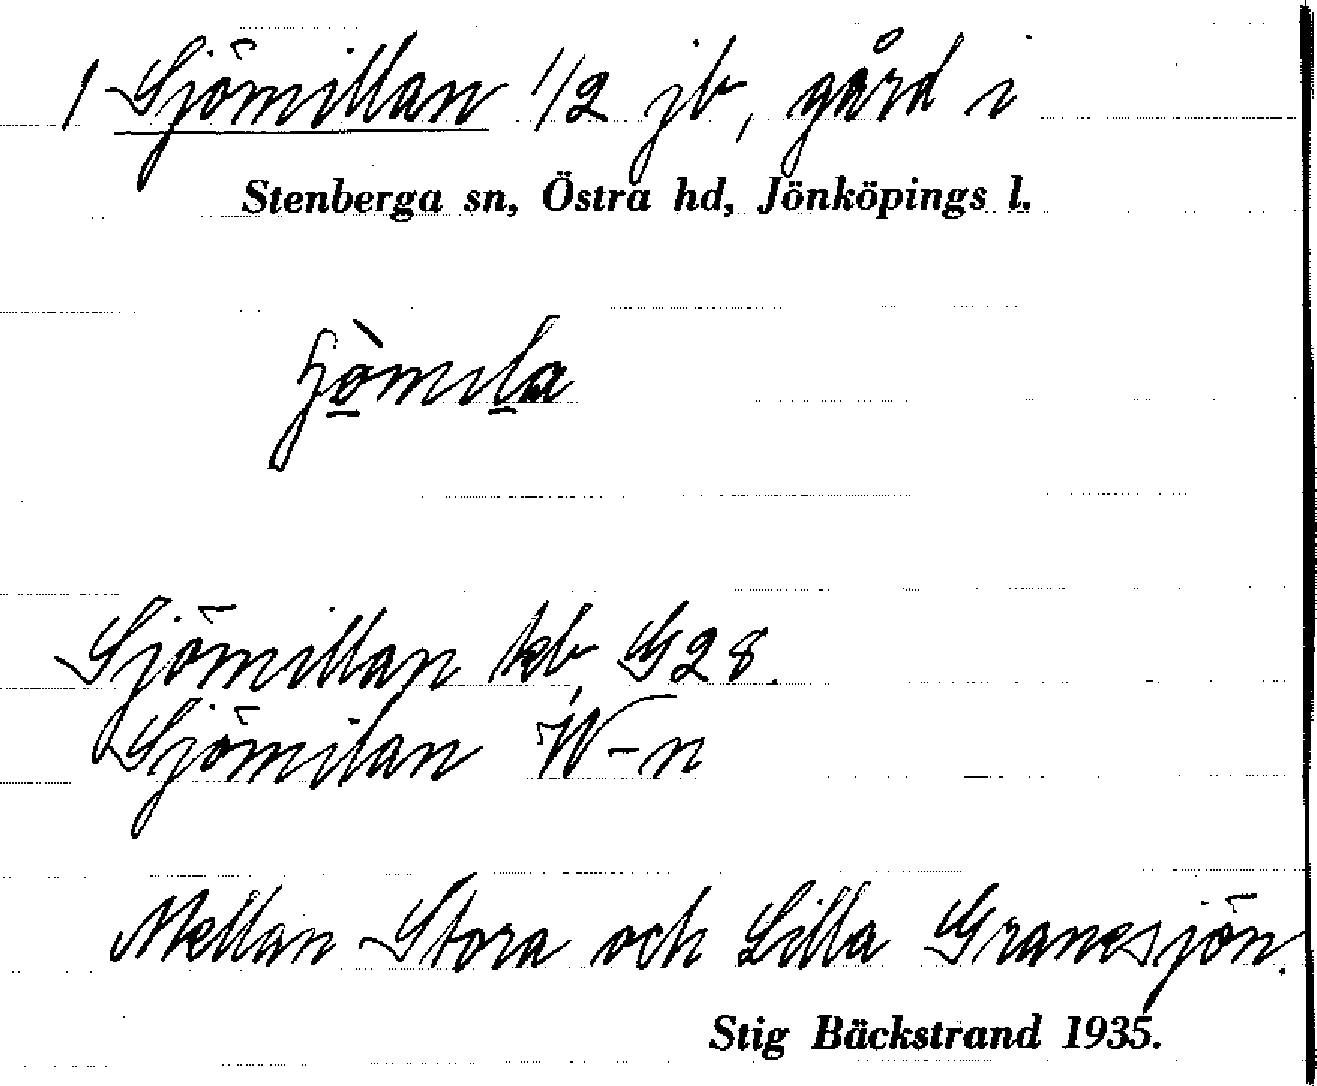 1 Sjömillan 1/2 jb, gård i
Stenberga sn, Östra hd, Jönköpings l.
Sjömillan kb G28.
Sjömilan W-n
Mellan Stora och Lilla Granesjön.
Stig Bäckstrand 1935.